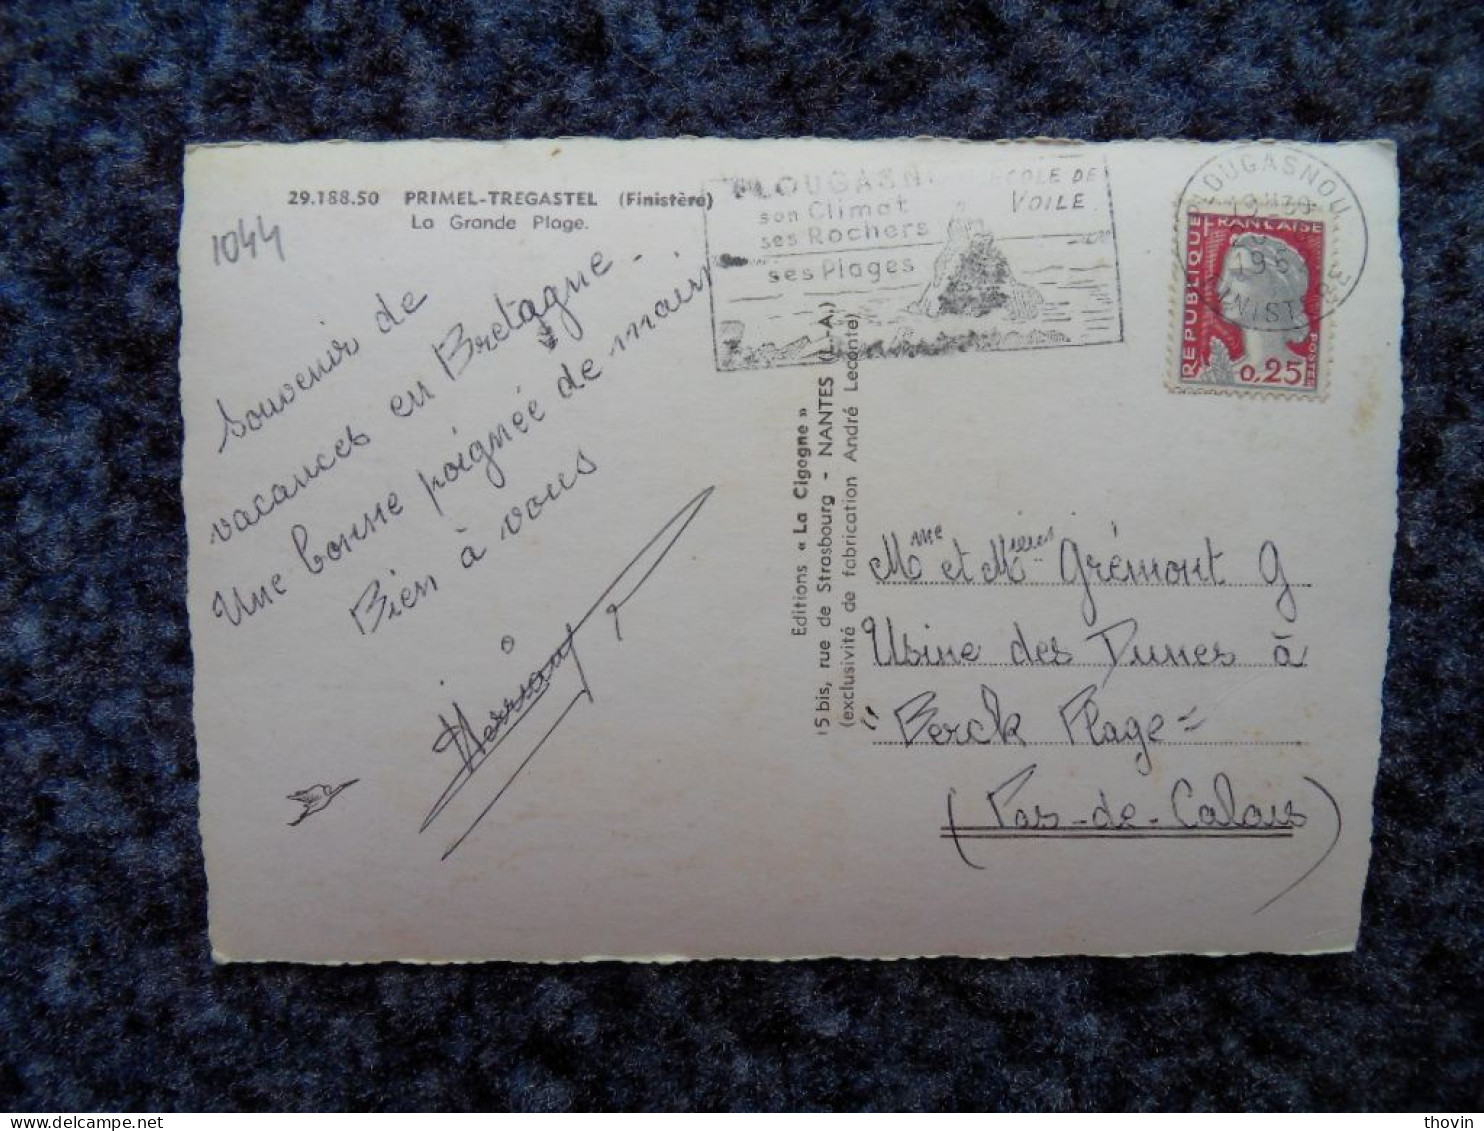 29.188.50 PRIMEL-TREGASTEL (Finistère)
La Grande Plage.
1044
Souvenir de
vacances en Bretagne.
Une bonne poignée de main
Bien à vous
PLOUGASNOU
son Climat
ses Rochers
ses Plages
ECOLE DE
VOILE
PLOUGASNOU
FINISTERE
REPUBLIQUE
FRANCAISE
POSTES
0,25
Editions « La Cigogne »
15 bis, rue de Strasbourg - NANTES (L.-A.)
(exclusivité de fabrication André Leconte)
Mme et Mr Grémont G
Usine des Dunes à
"Berck Plage"
(Pas-de-Calais)
thovin